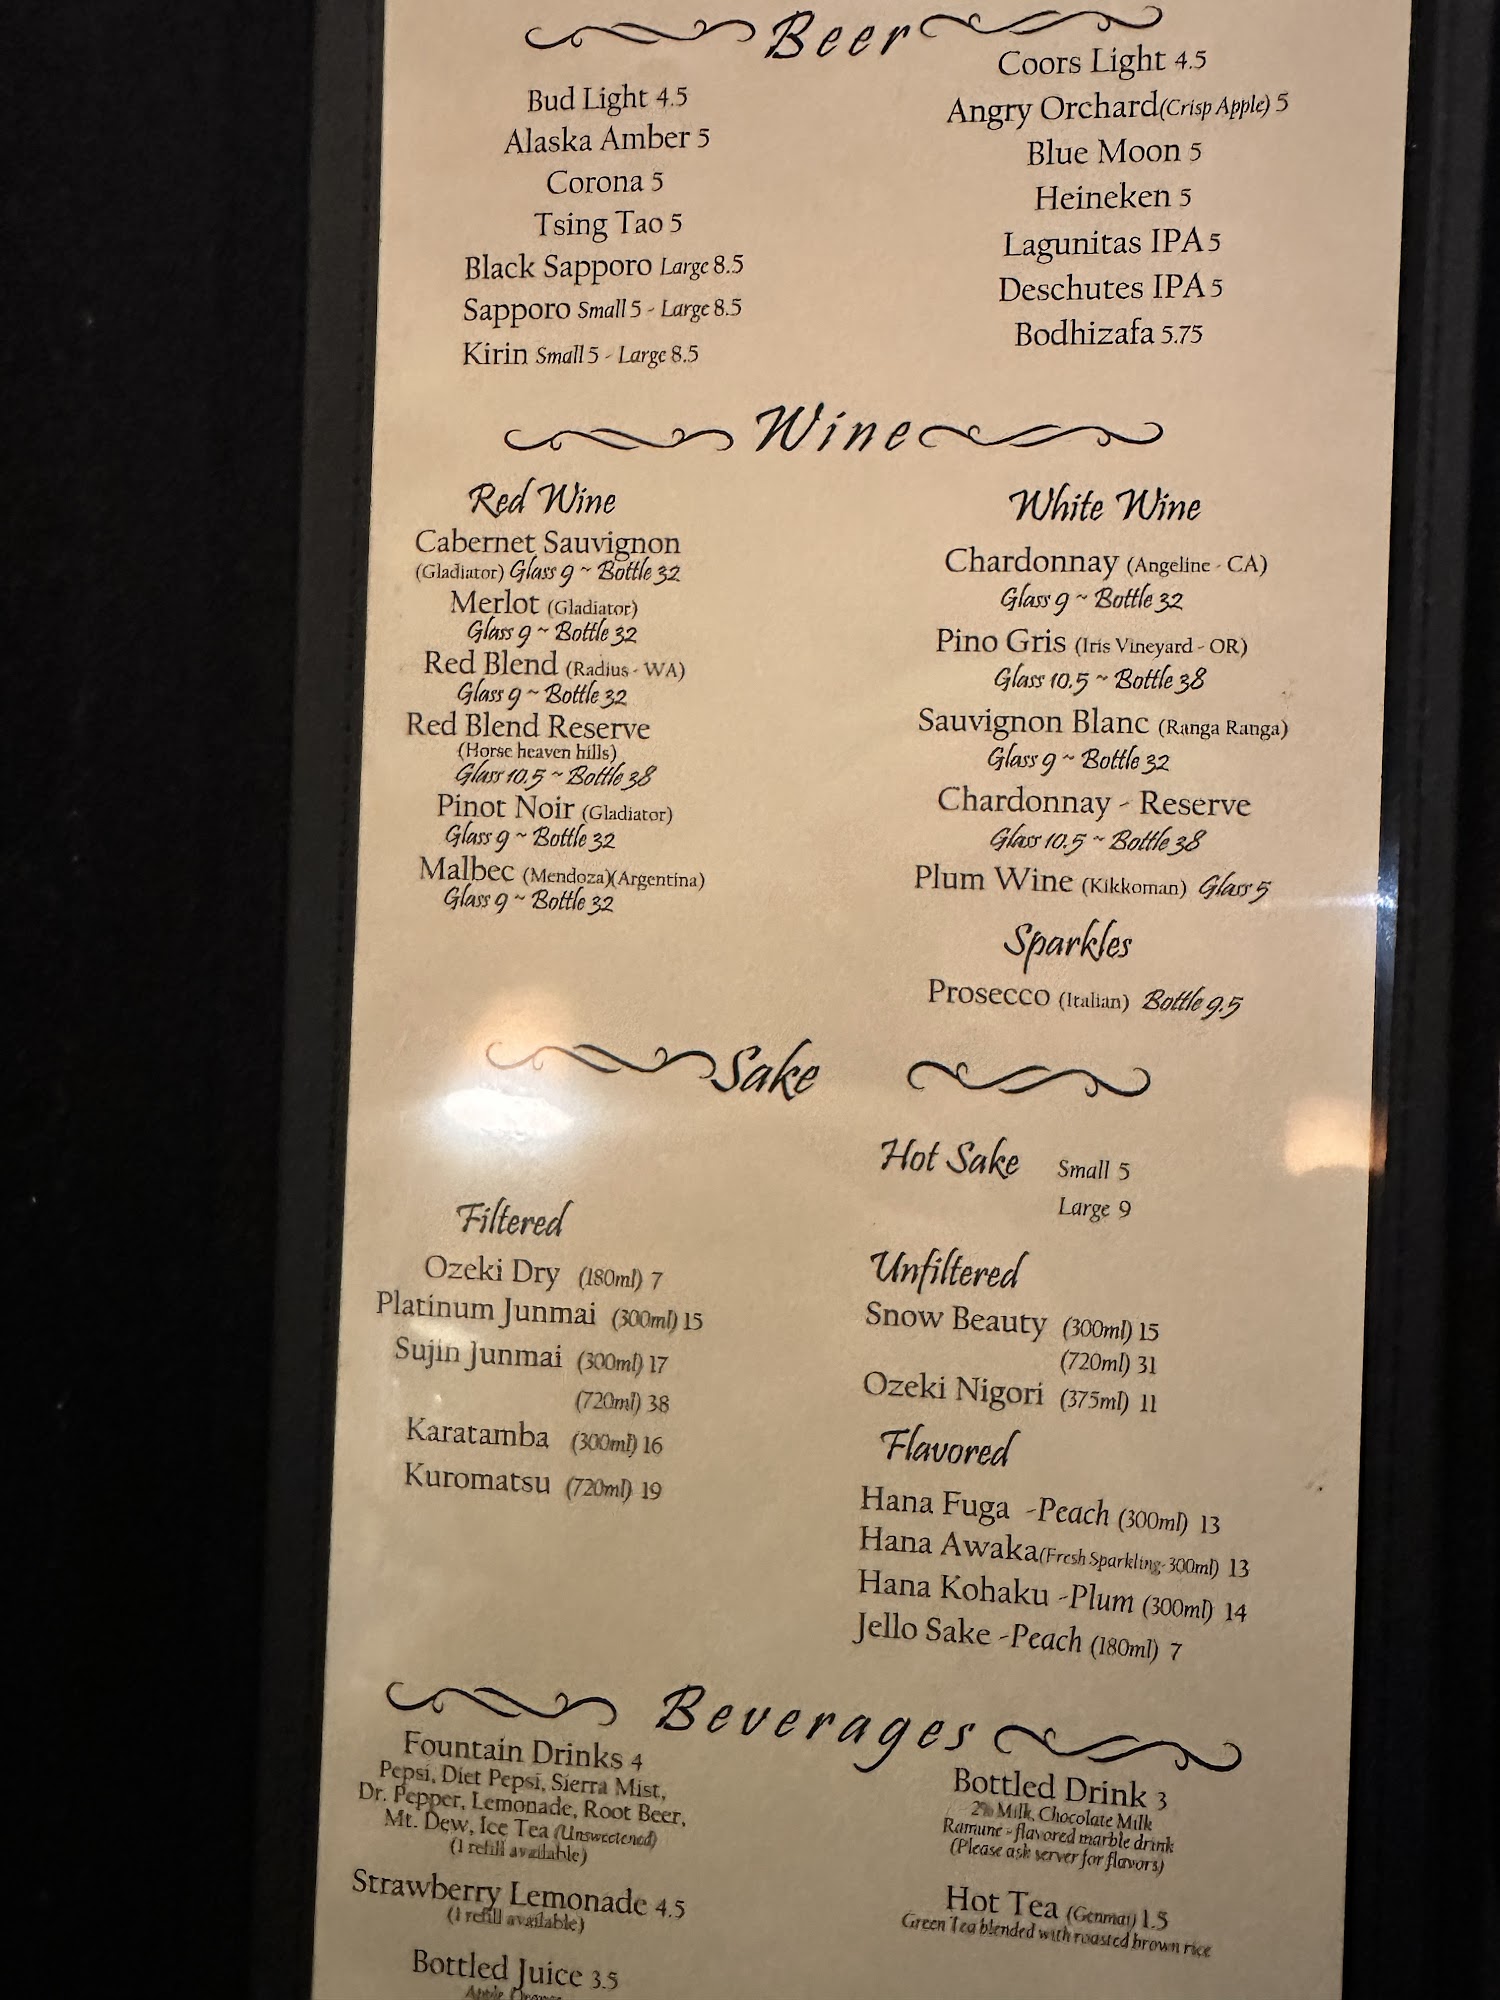 Beer
Bud Light 4.5
Alaska Amber 5
Corona 5
Tsing Tao 5
Black Sapporo Large 8.5
Sapporo Small 5 - Large 8.5
Kirin Small 5 - Large 8.5
Coors Light 4.5
Angry Orchard(Crisp Apple) 5
Blue Moon 5
Heineken 5
Lagunitas IPA 5
Deschutes IPA 5
Bodhizafa 5.75
Wine
Red Wine
Cabernet Sauvignon
(Gladiator) Glass 9 ~ Bottle 32
Merlot (Gladiator)
Glass 9 ~ Bottle 32
Red Blend (Radius - WA)
Glass 9 ~ Bottle 32
Red Blend Reserve
(Horse heaven hills)
Glass 10.5 ~ Bottle 38
Pinot Noir (Gladiator)
Glass 9 ~ Bottle 32
Malbec (Mendoza)(Argentina)
Glass 9 ~ Bottle 32
White Wine
Chardonnay (Angeline - CA)
Glass 9 ~ Bottle 32
Pino Gris (Iris Vineyard - OR)
Glass 10.5 ~ Bottle 38
Sauvignon Blanc (Ranga Ranga)
Glass 9 ~ Bottle 32
Chardonnay - Reserve
Glass 10.5 ~ Bottle 38
Plum Wine (Kikkoman) Glass 5
Sparkles
Prosecco (Italian) Bottle 9.5
Sake
Filtered
Ozeki Dry (180ml) 7
Platinum Junmai (300ml) 15
Sujin Junmai (300ml) 17
(720ml) 38
Karatamba (300ml) 16
Kuromatsu (720ml) 19
Hot Sake Small 5
Large 9
Unfiltered
Snow Beauty (300ml) 15
(720ml) 31
Ozeki Nigori (375ml) 11
Flavored
Hana Fuga -Peach (300ml) 13
Hana Awaka(Fresh Sparkling-300ml) 13
Hana Kohaku -Plum (300ml) 14
Jello Sake -Peach (180ml) 7
Beverages
Fountain Drinks 4
Pepsi, Diet Pepsi, Sierra Mist,
Dr. Pepper, Lemonade, Root Beer,
Mt. Dew, Ice Tea (Unsweetened)
(1 refill available)
Strawberry Lemonade 4.5
(1 refill available)
Bottled Juice 3.5
Apple, Orange
Bottled Drink 3
2% Milk, Chocolate Milk
Ramune - flavored marble drink
(Please ask server for flavors)
Hot Tea (Genmai) 1.5
Green Tea blended with roasted brown rice